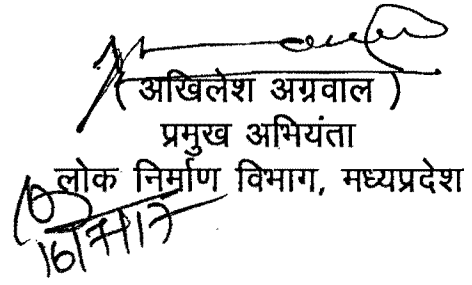 ( अखिलेश अग्रवाल )
प्रमुख अभियंता
लोक निर्माण विभाग, मध्यप्रदेश
16/7/17